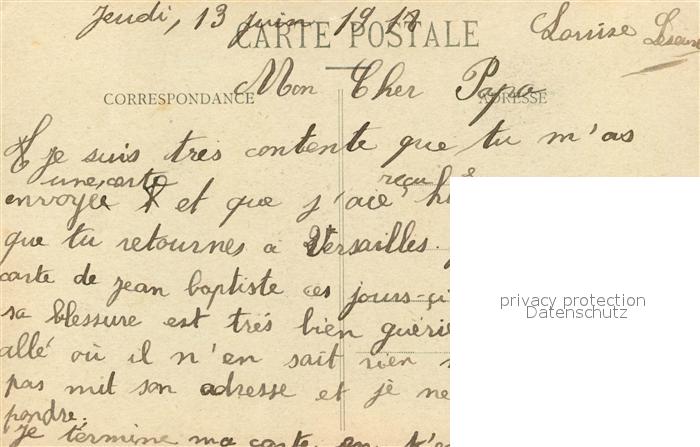 Jeudi, 13 juin 1918
CARTE POSTALE
Louise
Mon Cher Papa
CORRESPONDANCE
ADRESSE
je suis très contente que tu m'as
une carte reçu
envoyée et que j'aie
que tu retournes a Versailles.
carte de jean baptiste ces jours-çi
sa blessure est trés bien guérie
allé où il n'en sait rien
pas mit son adresse et je ne
pondre.
Je termine ma carte en
privacy protection
Datenschutz